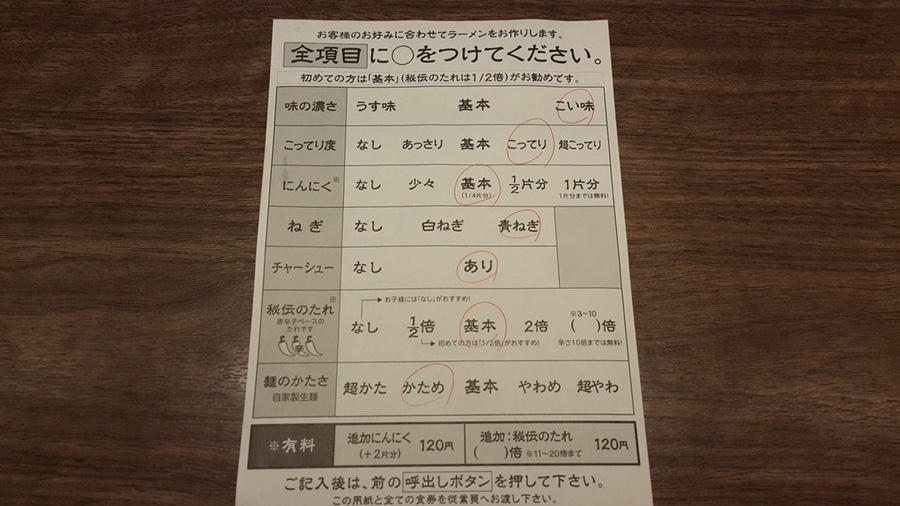 お客様のお好みに合わせてラーメンをお作りします。
全項目に○をつけてください。
初めての方は「基本」(秘伝のたれは1/2倍)がお勧めです。
味の濃さ うす味 基本 こい味
こってり度 なし あっさり 基本 こってり 超こってり
にんにく※ なし 少々 基本 1/2片分 1片分
(1/4片分) 1片分までは無料!
ねぎ なし 白ねぎ 青ねぎ
チャーシュー なし あり
お子様には「なし」がおすすめ!
秘伝のたれ※ なし 1/2倍 基本 2倍 ※3~10
( )倍
唐辛子ベースの
たれです
辛
初めての方は「1/2倍」がおすすめ! 辛さ10倍までは無料!
麺のかたさ 超かた かため 基本 やわめ 超やわ
自家製生麺
※有料 追加にんにく 120円 追加:秘伝のたれ 120円
(+2片分) ( )倍 ※11~20倍まで
ご記入後は、前の呼出しボタンを押して下さい。
この用紙と全ての食券を従業員へお渡し下さい。